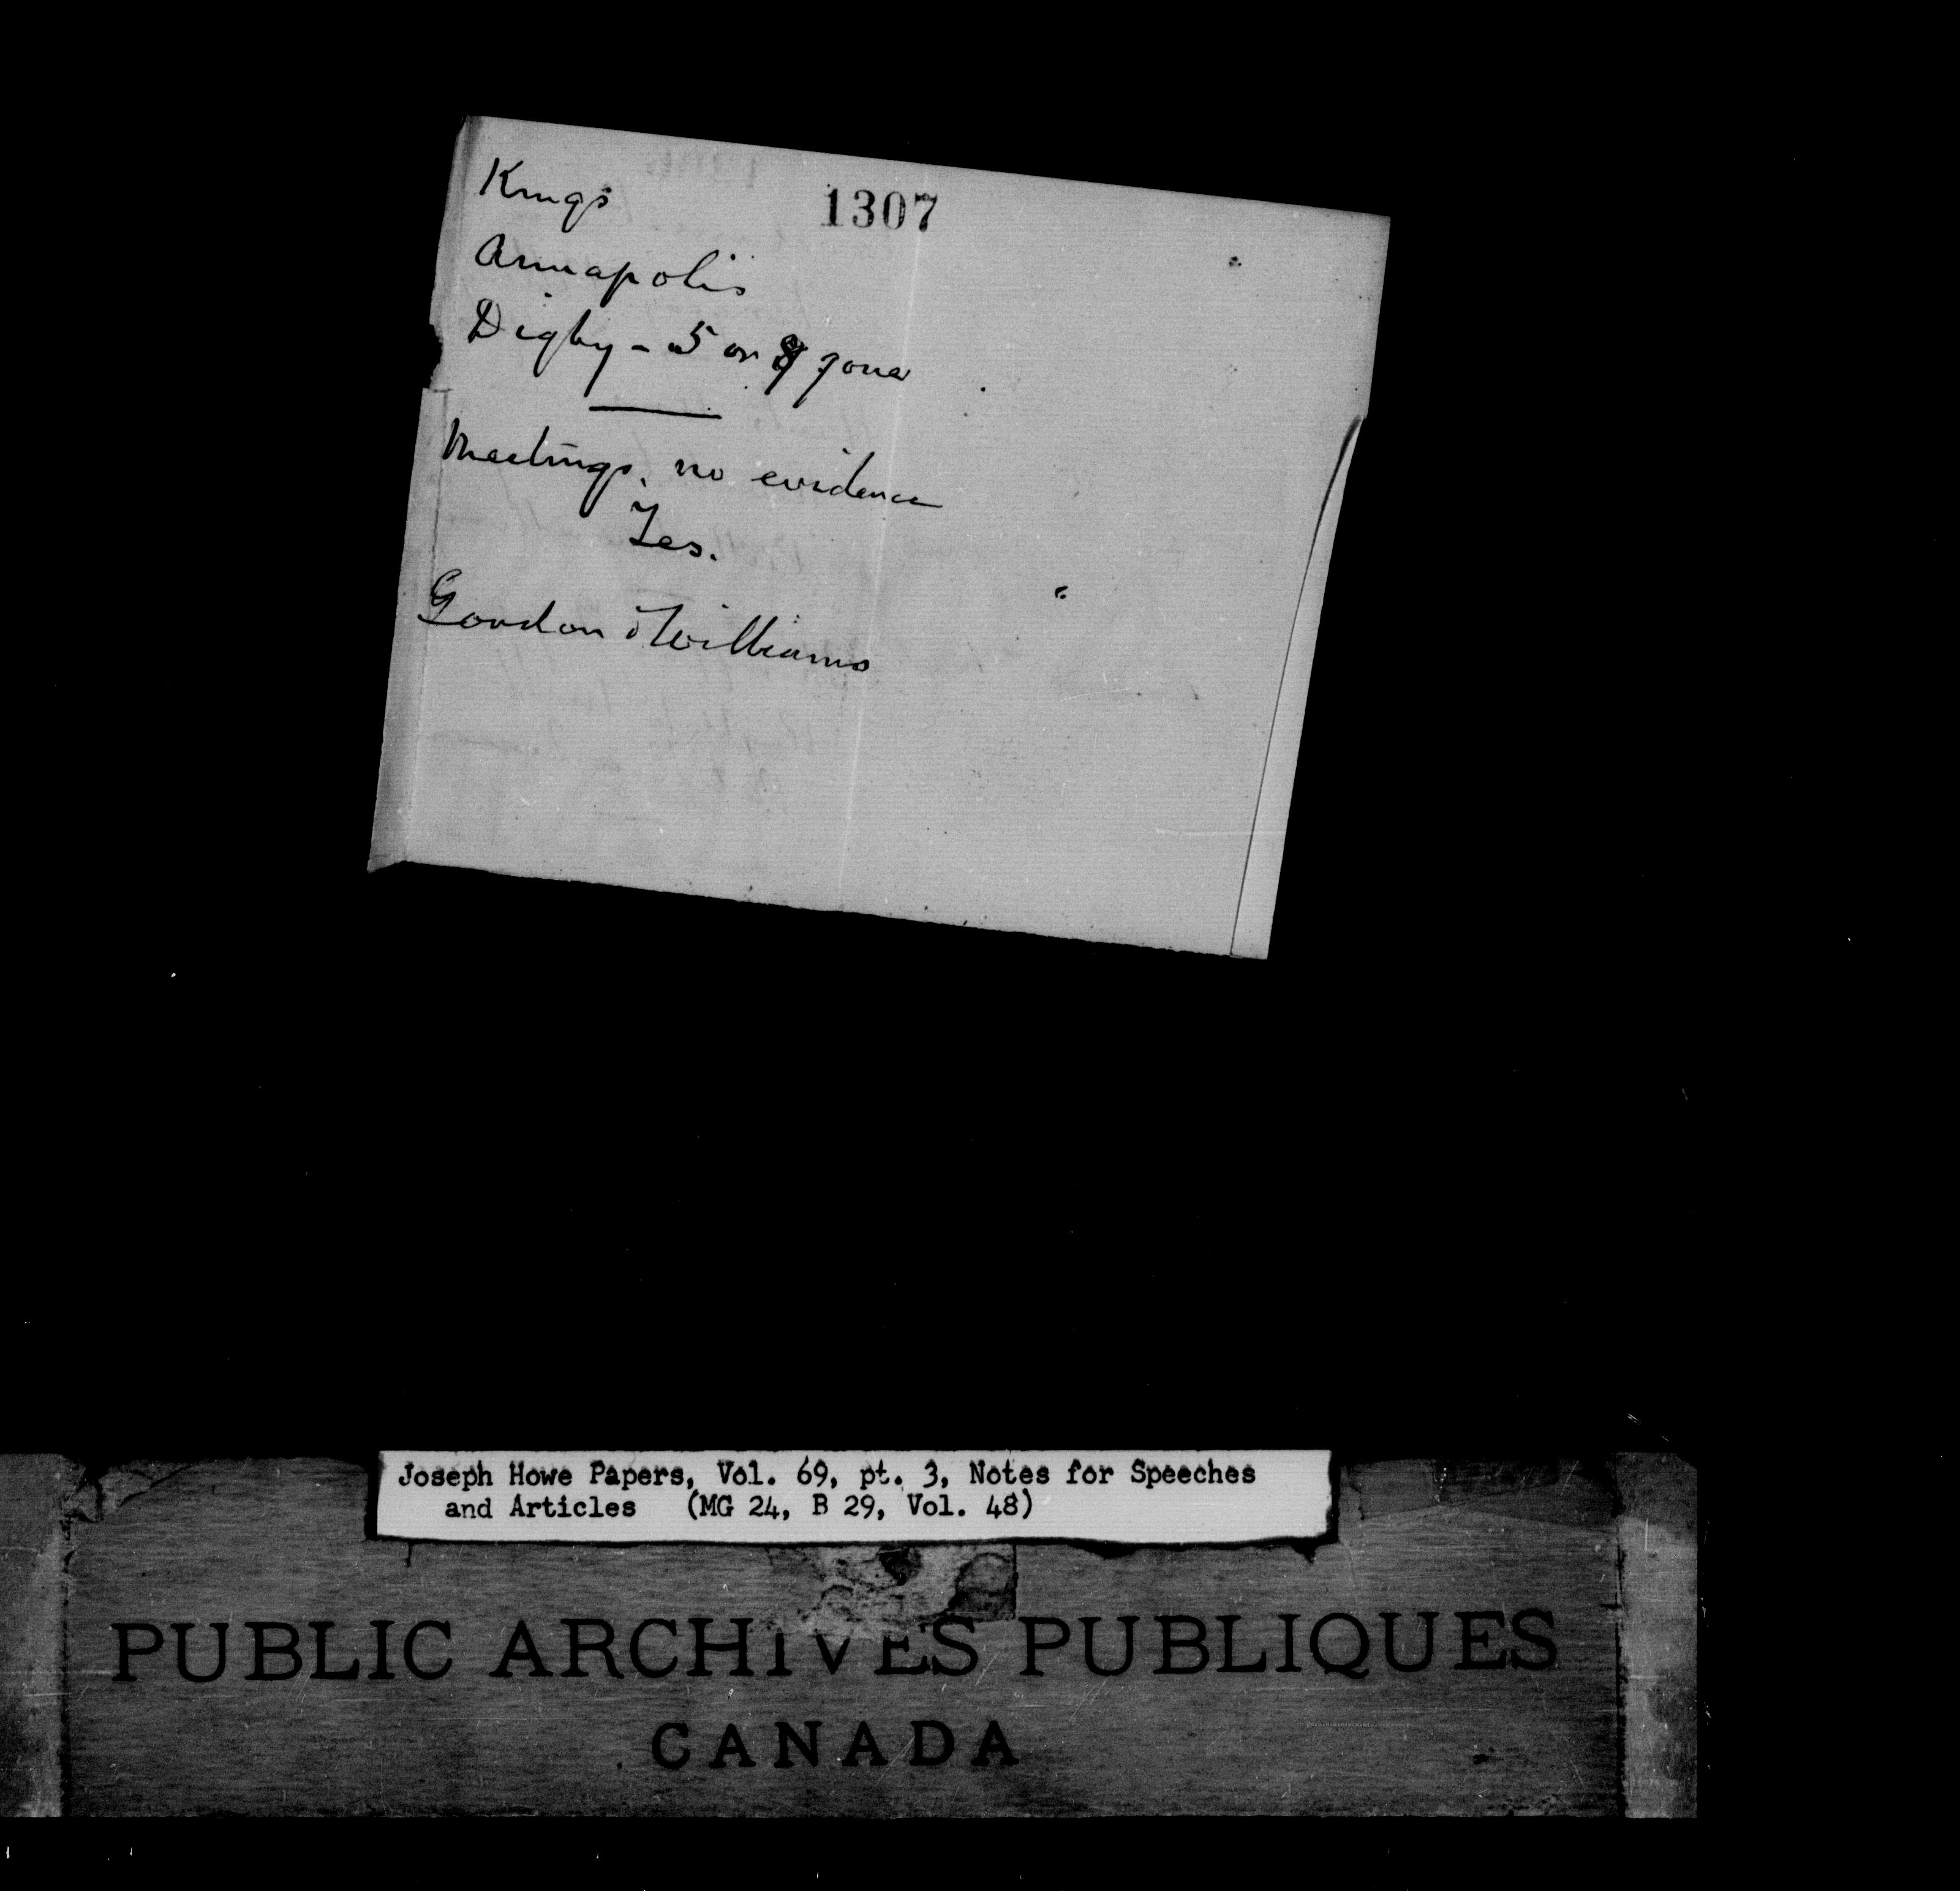 Kings
1307
Annapolis
Digby - 5 or gone
Meetings, no evidence
Yes.
Gordon & Williams
Joseph Howe Papers, Vol. 69, pt. 3, Notes for Speeches
and Articles (MG 24, B 29, Vol. 48)
PUBLIC ARCHIVES PUBLIQUES
CANADA